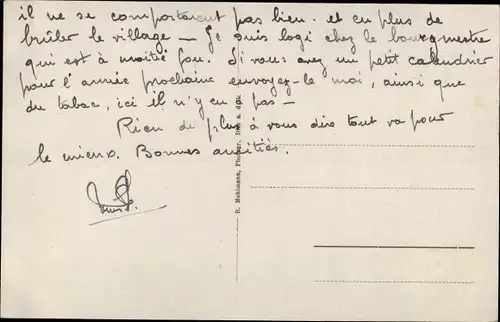 il ne se comportaient pas bien. et en plus de
brûler le village – Je suis logé chez le bourgmestre
qui est à moitié fou. Si vous avez un petit calendrier
pour l'année prochaine envoyez-le moi, ainsi que
du tabac, ici il n'y en a pas –
Rien de plus à vous dire tout va pour
le mieux. Bonnes amitiés.